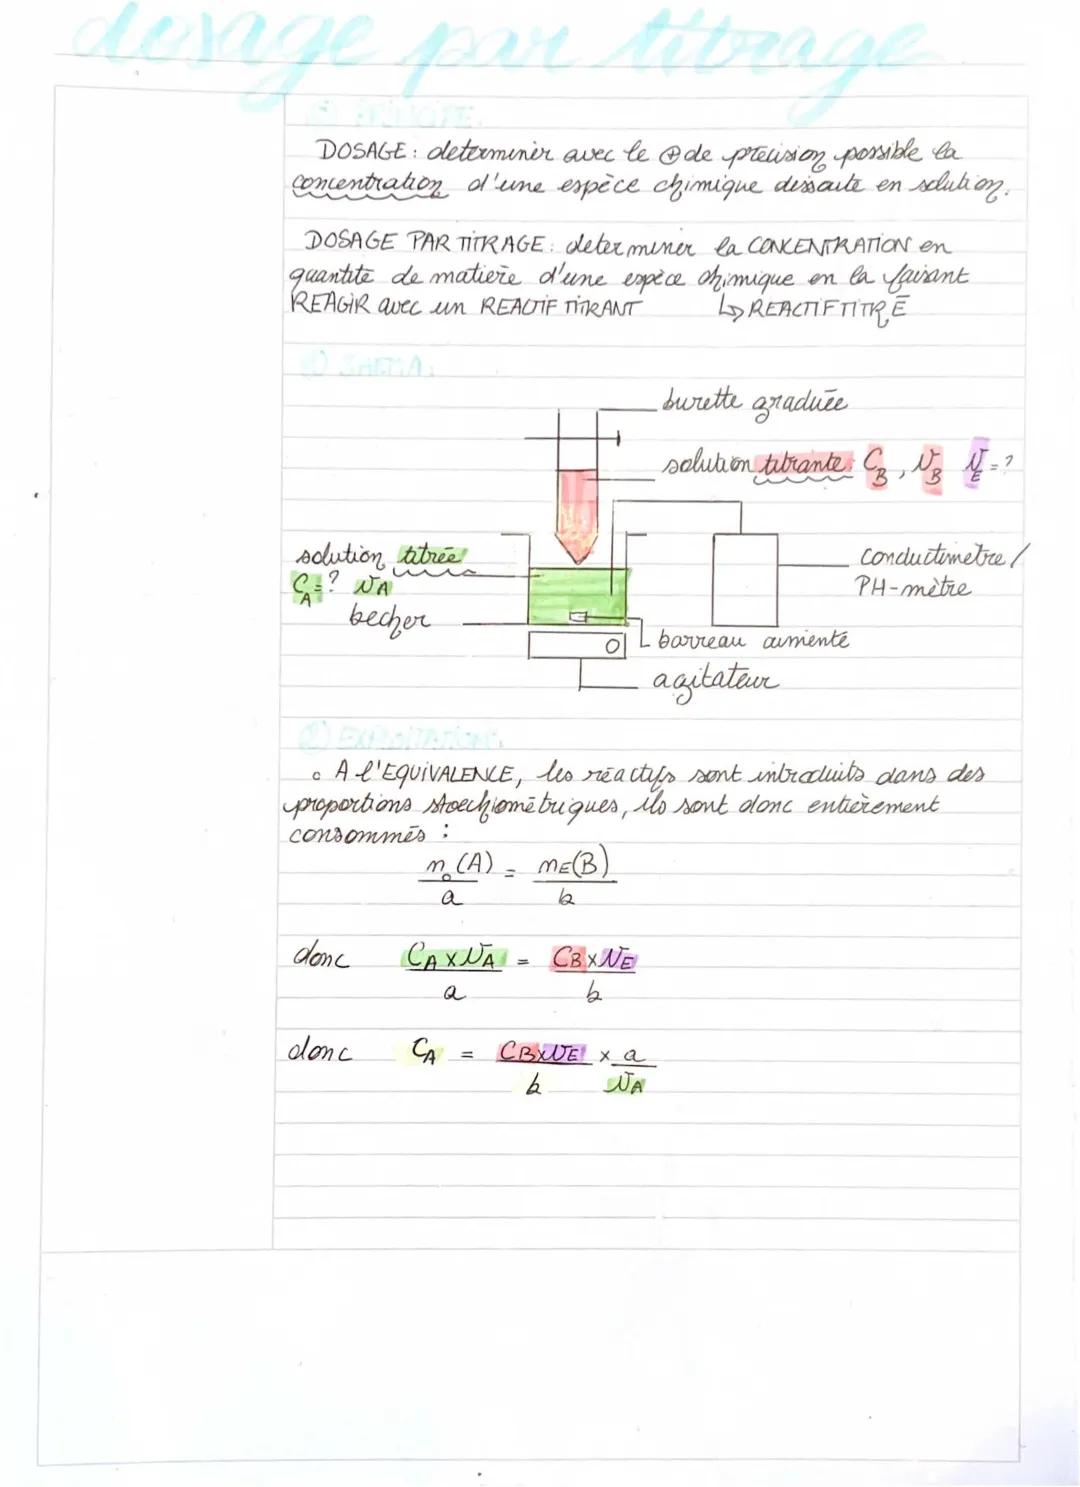 dosage par titrage
DOSAGE : determiner avec le ⊕ de precision possible la
concentration d'une espèce chimique dissoute en solution.
DOSAGE PAR TITRAGE : determiner la CONCENTRATION en
quantité de matière d'une espèce chimique en la faisant
REAGIR avec un REACTIF TITRANT ↳ REACTIF TITRÉ
burette graduée
solution titrante : C_B, V_B V_E = ?
solution titrée
C_A = ? V_A
becher
conductimetre /
PH-mètre
barreau aimenté
agitateur
② EXPLOITATION :
◦ A l'EQUIVALENCE, les réactifs sont introduits dans des
proportions stoechiométriques, ils sont donc entièrement
consommés :
n₀(A)/a = n_E(B)/b
donc C_A x V_A/a = C_B x V_E/b
donc C_A = C_B x V_E/b x a/V_A